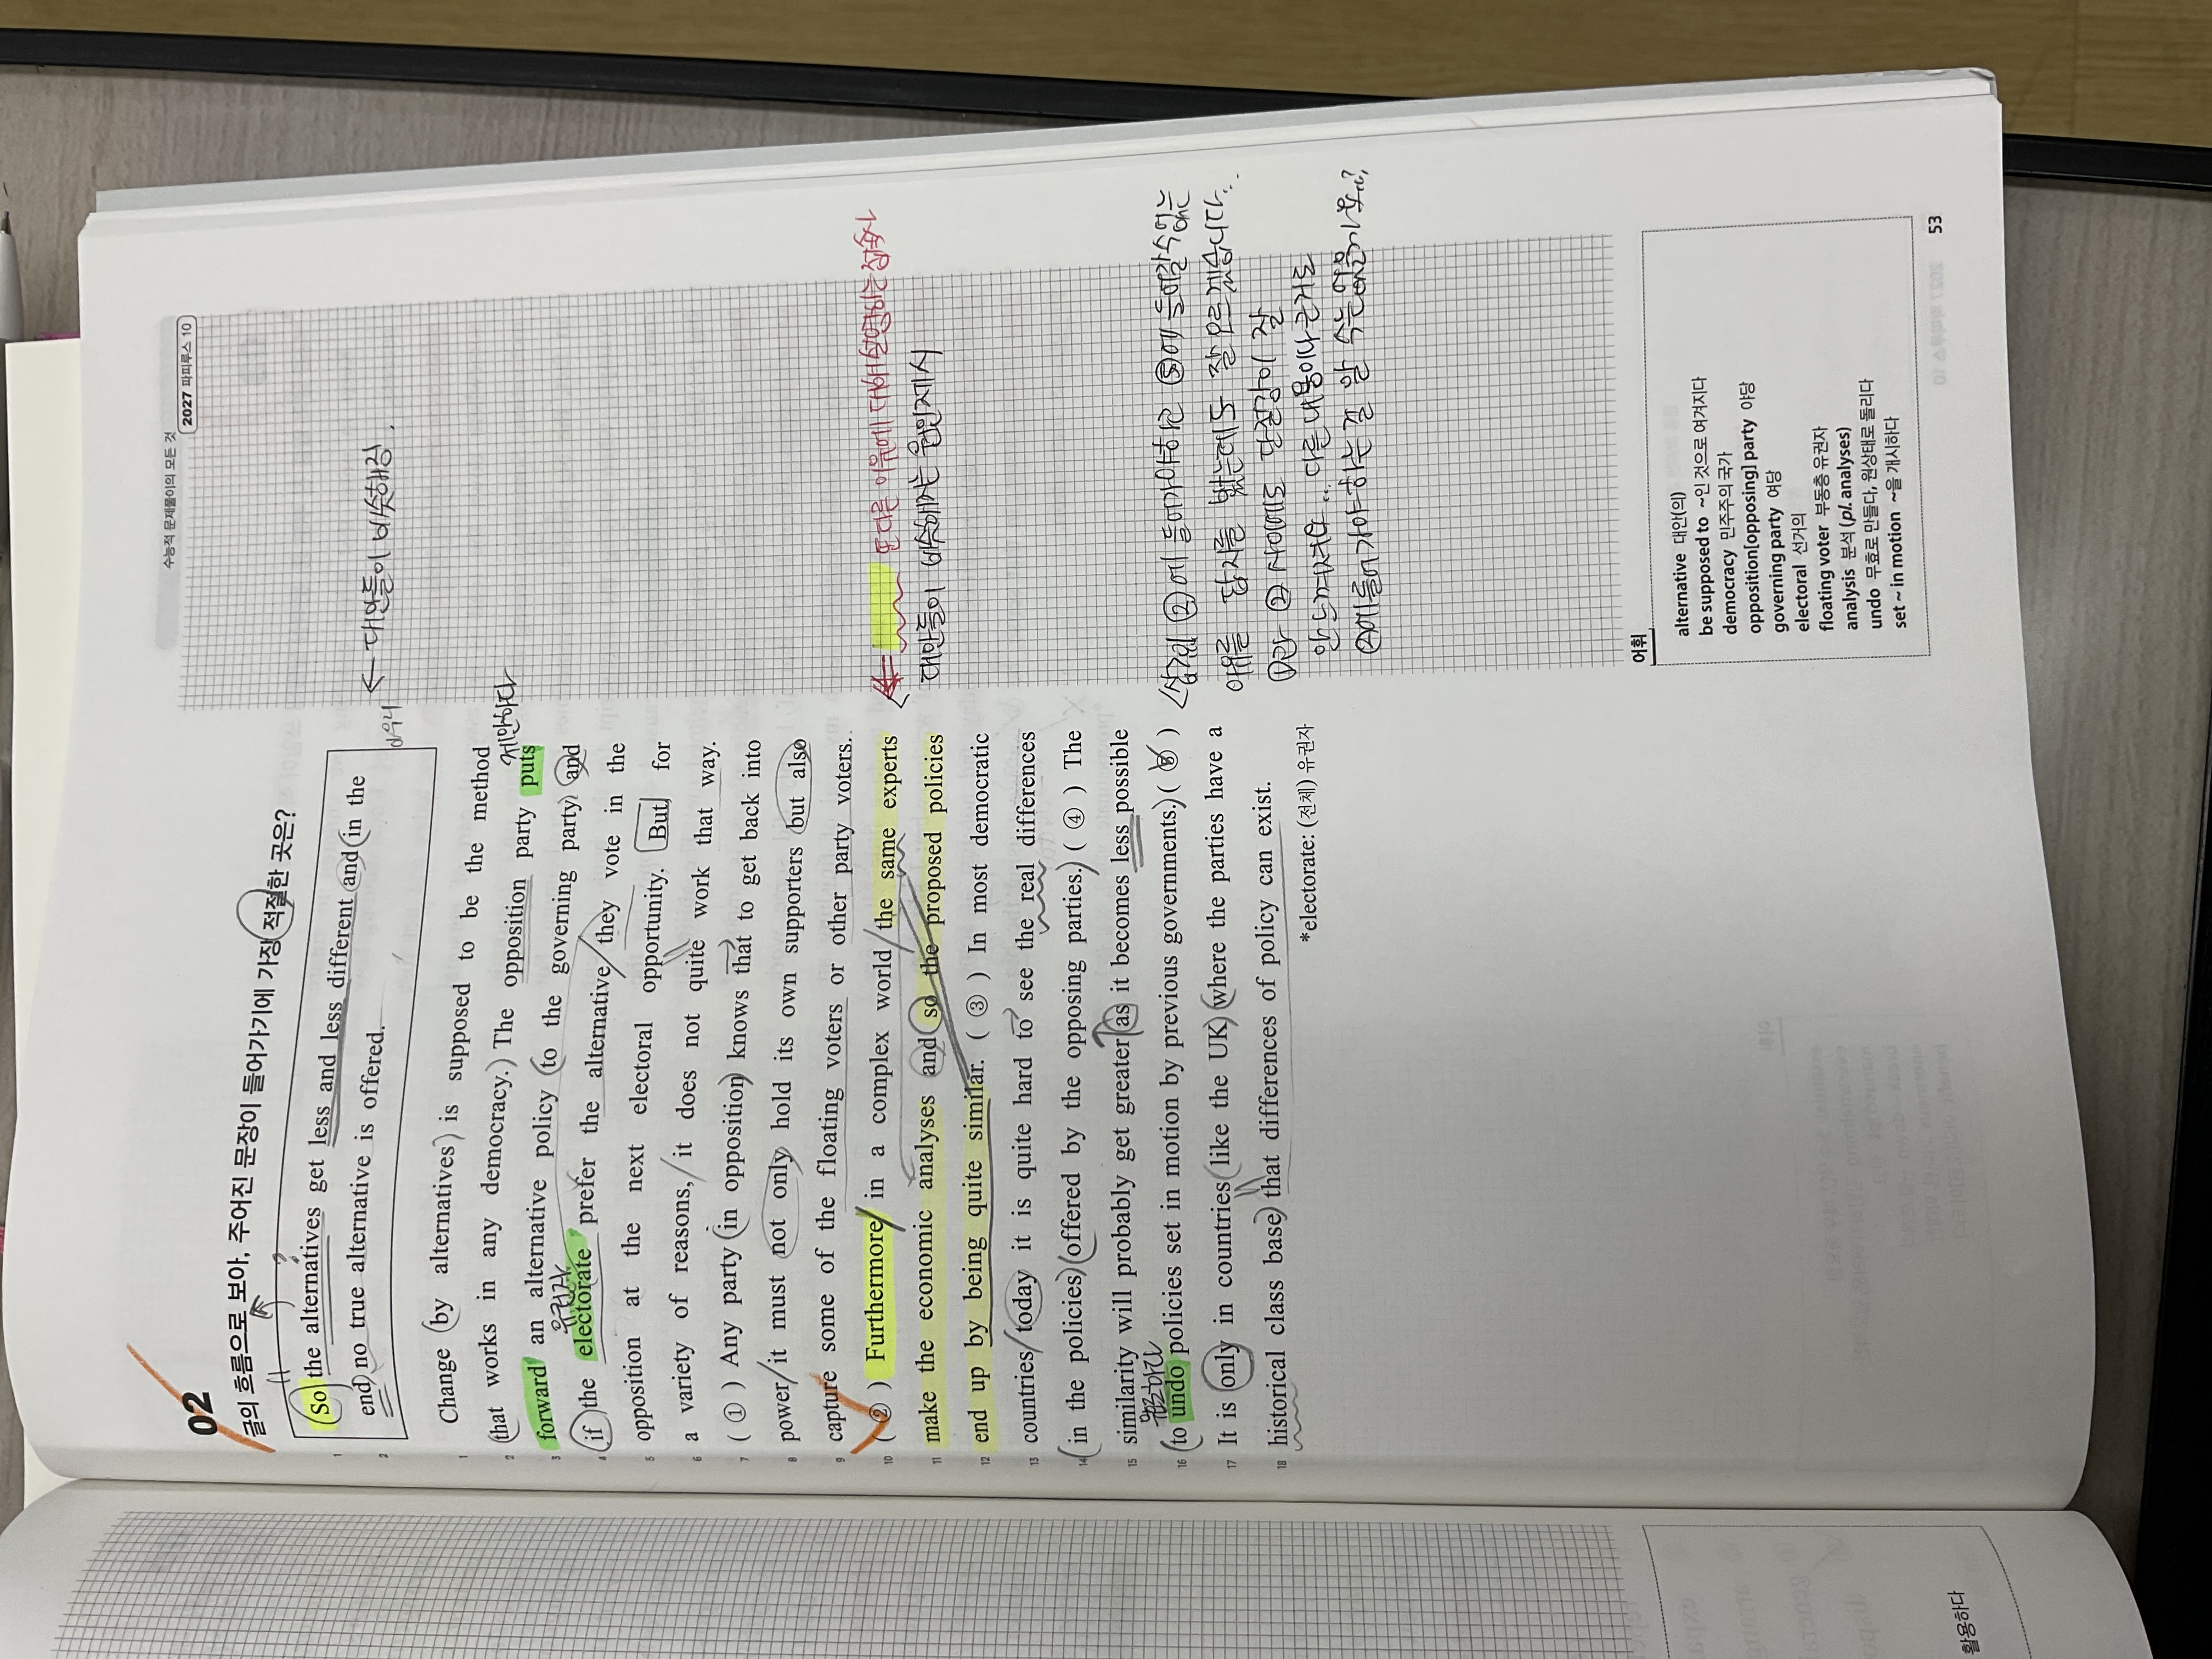 수능적 문제풀이의 모든 것
2027 파피루스 10
02
글의 흐름으로 보아, 주어진 문장이 들어가기에 가장 적절한 곳은?
So the alternatives get less and less different and in the
end no true alternative is offered.
← 대안들이 비슷해짐.
Change by alternatives is supposed to be the method
that works in any democracy. The opposition party puts
제안하다
forward an alternative policy to the governing party and
유권자
if the electorate prefer the alternative they vote in the
opposition at the next electoral opportunity. But for
a variety of reasons, it does not quite work that way.
( ① ) Any party in opposition knows that to get back into
power it must not only hold its own supporters but also
capture some of the floating voters or other party voters.
( ② ) Furthermore in a complex world the same experts
make the economic analyses and so the proposed policies
end up by being quite similar. ( ③ ) In most democratic
countries today it is quite hard to see the real differences
in the policies offered by the opposing parties. ( ④ ) The
similarity will probably get greater as it becomes less possible
to undo policies set in motion by previous governments. ( ⑤ )
It is only in countries like the UK where the parties have a
historical class base that differences of policy can exist.
*electorate: (전체) 유권자
또 다른 이유에 대해 설명하는 접속사
대안들이 비슷해지는 원인 제시
<삽입에 ②에 들어가야하고 ⑤에 들어갈 수 없는
이유를 답지를 봤는데도 잘 모르겠습니다...
①과 ② 사이에도 단절감이 잘
안 느껴져요... 다른 내용이나 근거로
②에 들어가야 하는 걸 알 수는 없을까요?
어휘
alternative 대안(의)
be supposed to ~인 것으로 여겨지다
democracy 민주주의 국가
opposition[opposing] party 야당
governing party 여당
electoral 선거의
floating voter 부동층 유권자
analysis 분석 (pl. analyses)
undo 무효로 만들다, 원상태로 돌리다
set ~ in motion ~을 개시하다
53
활용하다